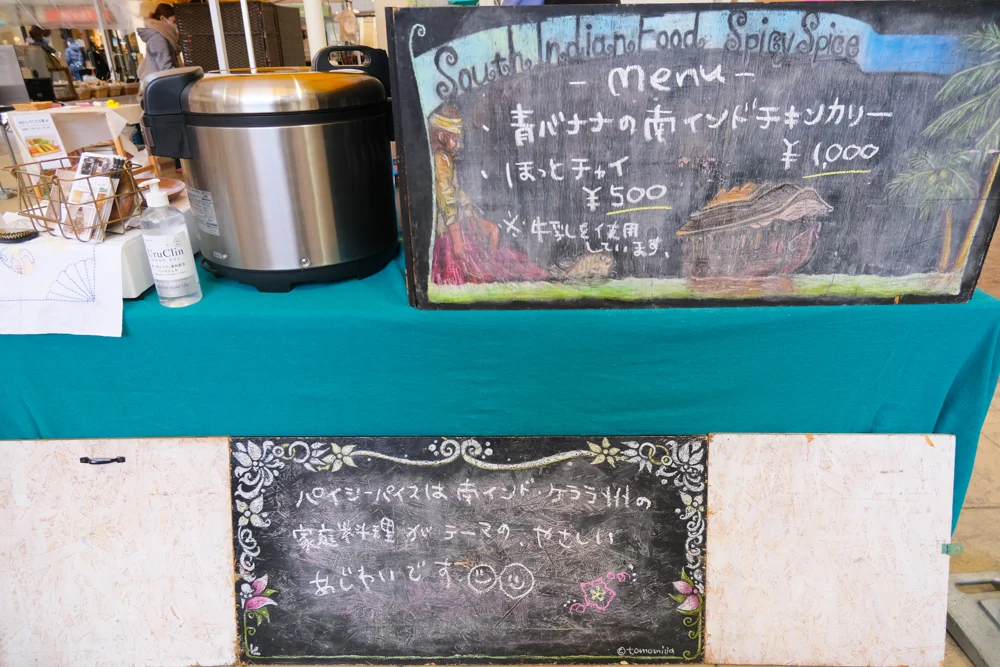 South Indian Food Spicy Spice
- menu -
・青バナナの南インドチキンカリー
¥1,000
・ほっとチャイ
¥500
※牛乳を使用
しています。
UruClin
パイシーパイスは南インド・ケララ州の
家庭料理がテーマの、やさしい
あじわいです
©tomomida